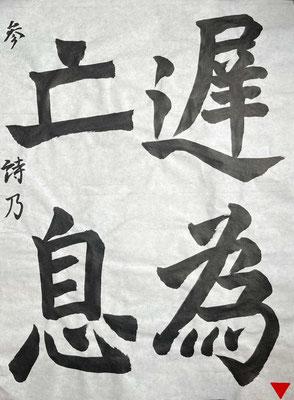 遅為
亡息
参 詩乃